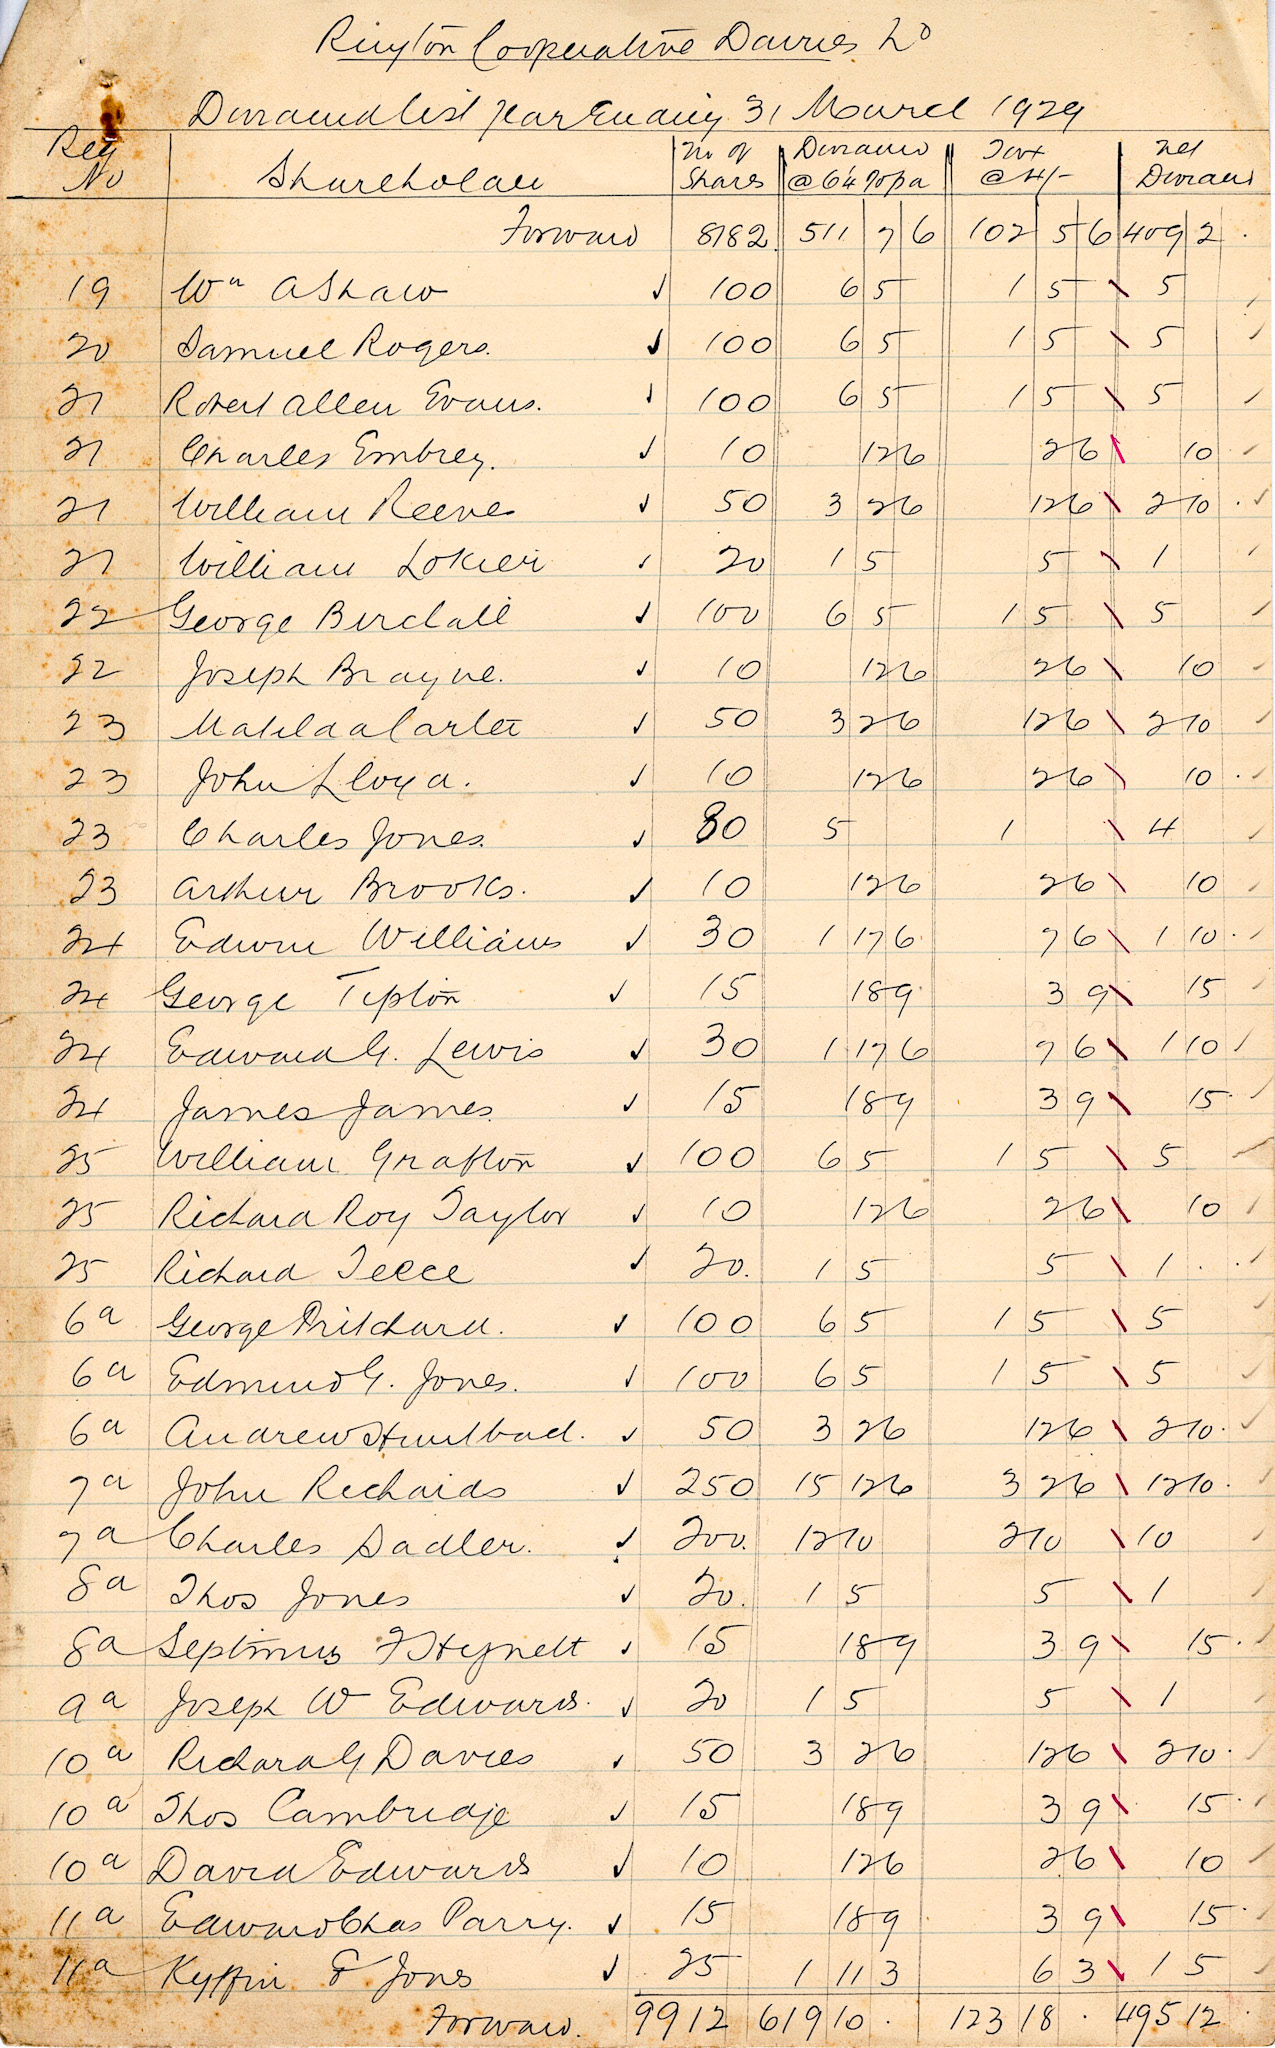 Ruyton Cooperative Dairies Ld
Dividend list year Ending 31 March 1929
Reg No Shareholder No of Shares Dividend @ 6¼ % pa Tax @ 4/- Net Dividend
Forward 8182 511 7 6 102 5 6 409 2 .
19 Wm A Shaw ✓ 100 6 5 1 5 5
20 Samuel Rogers. ✓ 100 6 5 1 5 5
21 Robert Allen Evans. ✓ 100 6 5 1 5 5
21 Charles Embrey. ✓ 10 12 6 2 6 10
21 William Reeves ✓ 50 3 2 6 12 6 2 10 .
21 William Lokier ✓ 20 1 5 5 1
22 George Birchall ✓ 100 6 5 1 5 5
22 Joseph Brayne. ✓ 10 12 6 2 6 10
23 Matilda Carter ✓ 50 3 2 6 12 6 2 10
23 John Lloyd. ✓ 10 12 6 2 6 10 .
23 Charles Jones. ✓ 80 5 1 4
23 Arthur Brooks. ✓ 10 12 6 2 6 10
24 Edwin Williams ✓ 30 1 17 6 7 6 1 10 .
24 George Tipton ✓ 15 18 9 3 9 15
24 Edward G. Lewis ✓ 30 1 17 6 7 6 1 10
24 James James ✓ 15 18 9 3 9 15 .
25 William Grafton ✓ 100 6 5 1 5 5
25 Richard Roy Taylor ✓ 10 12 6 2 6 10
25 Richard Teece ✓ 20. 1 5 5 1 . .
6a George Pritchard. ✓ 100 6 5 1 5 5
6a Edmund G. Jones. ✓ 100 6 5 1 5 5
6a Andrew Huntbach. ✓ 50 3 2 6 12 6 2 10 .
7a John Richards ✓ 250 15 12 6 3 2 6 12 10 .
7a Charles Sadler. ✓ 200. 12 10 2 10 10
8a Thos Jones ✓ 20. 1 5 5 1
8a Septimus F Hynett ✓ 15 18 9 3 9 15 .
9a Joseph W Edwards. ✓ 20 1 5 5 1
10a Richard G Davies ✓ 50 3 2 6 12 6 2 10 .
10a Thos Cambridge ✓ 15 18 9 3 9 15 .
10a David Edwards ✓ 10 12 6 2 6 10
11a Edward Chas Parry. ✓ 15 18 9 3 9 15 .
11a Kyffin E Jones ✓ 25 1 11 3 6 3 1 5
Forward. 9912 619 10 . 123 18 . 495 12 .